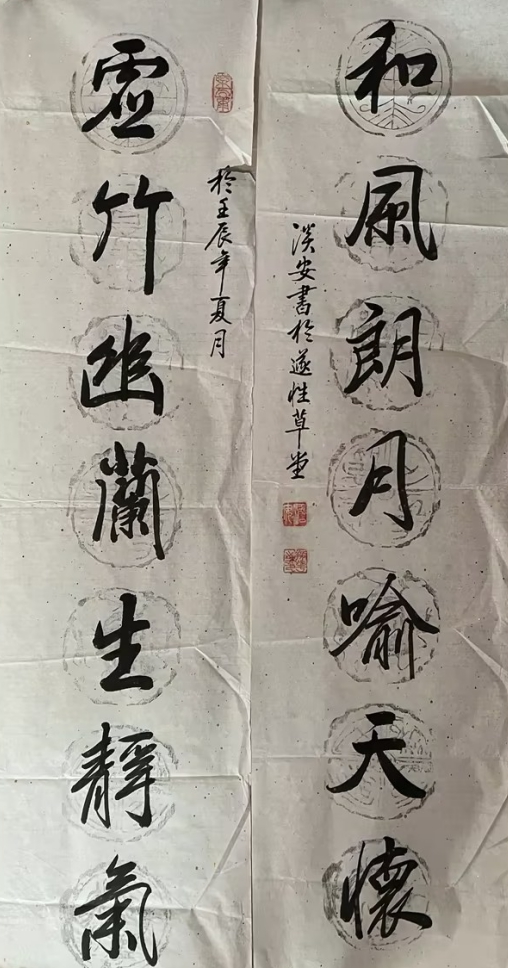 和風朗月喻天懷
淡安書於遂性草堂
於壬辰年夏月
虛竹幽蘭生靜氣